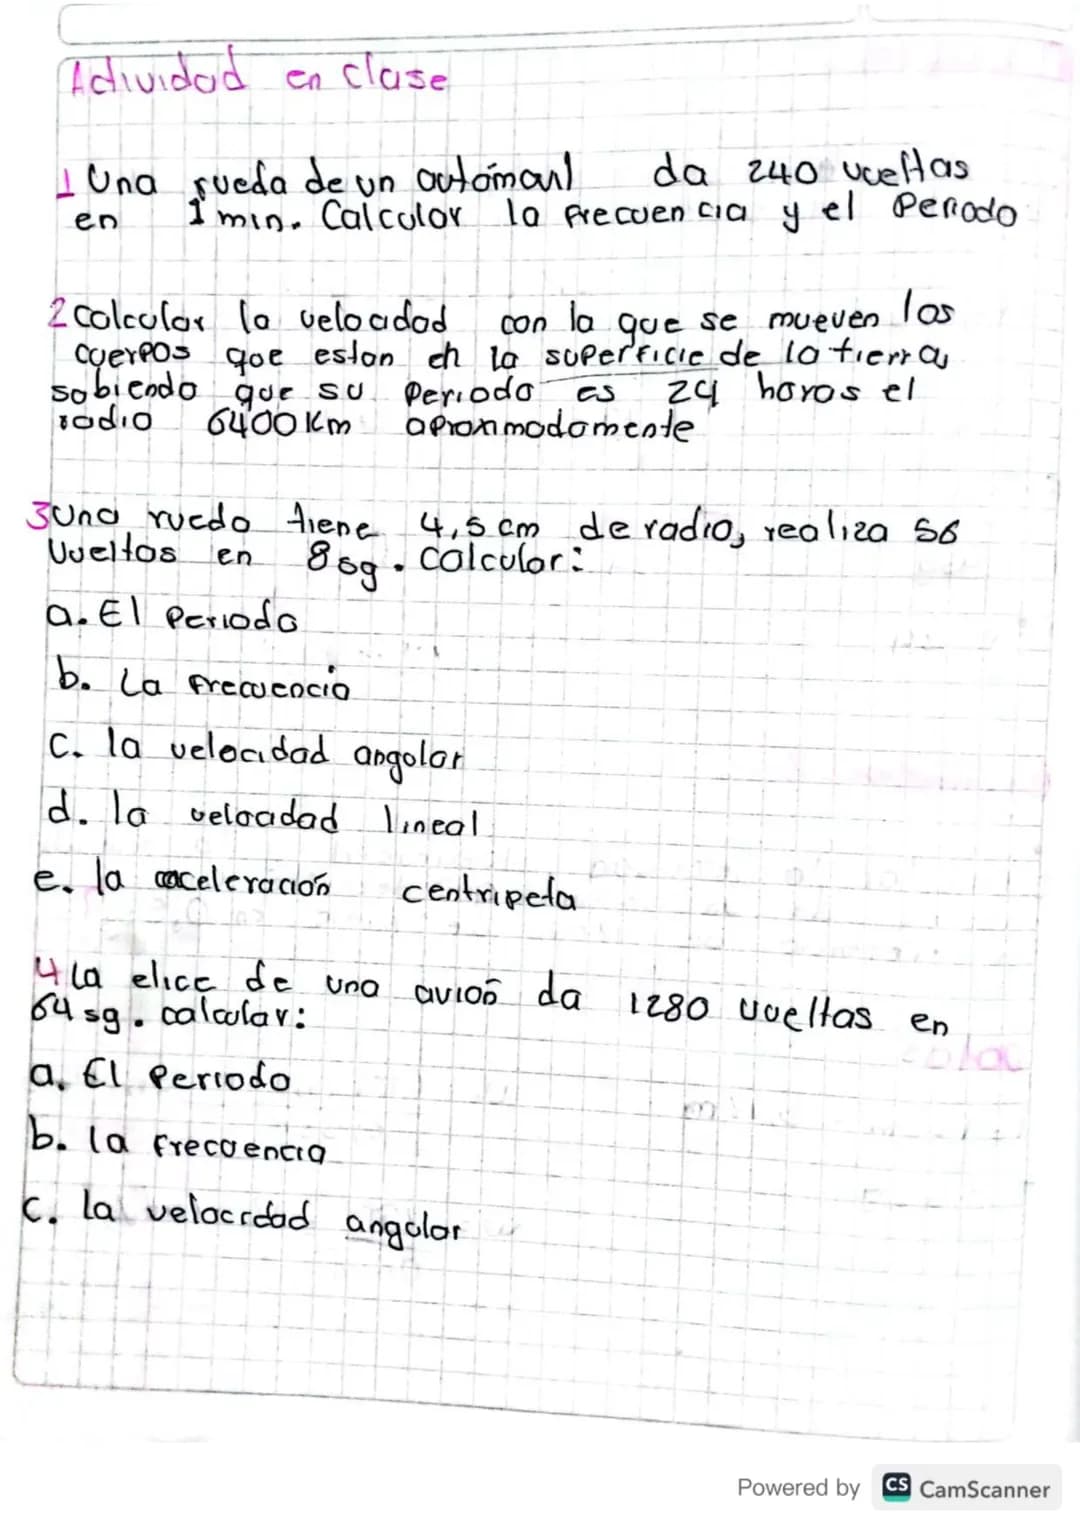 Actividad en clase
1 Una rueda de un automavl da 240 vueltas
en 1 min. Calcular la frecuencia y el Periodo
2 Calcular la velocidad con la que se mueven los
cuerpos que estan en la superficie de la tierra,
sabiendo que su Periodo es 24 horas el
radio 6400 Km aproxmodamente
3 Una rueda tiene 4,5 cm de radio, realiza 56
Vueltas en 8 sg. Calcular:
a. El Periodo
b. La frecuencia
c. la velocidad angular
d. la velocidad lineal
e. la aceleración centripeta
4 La elice de una avion da 1280 vueltas en
64 sg. calcular:
a. El Periodo
b. la frecuencia
c. la velocidad angular
Powered by CS CamScanner